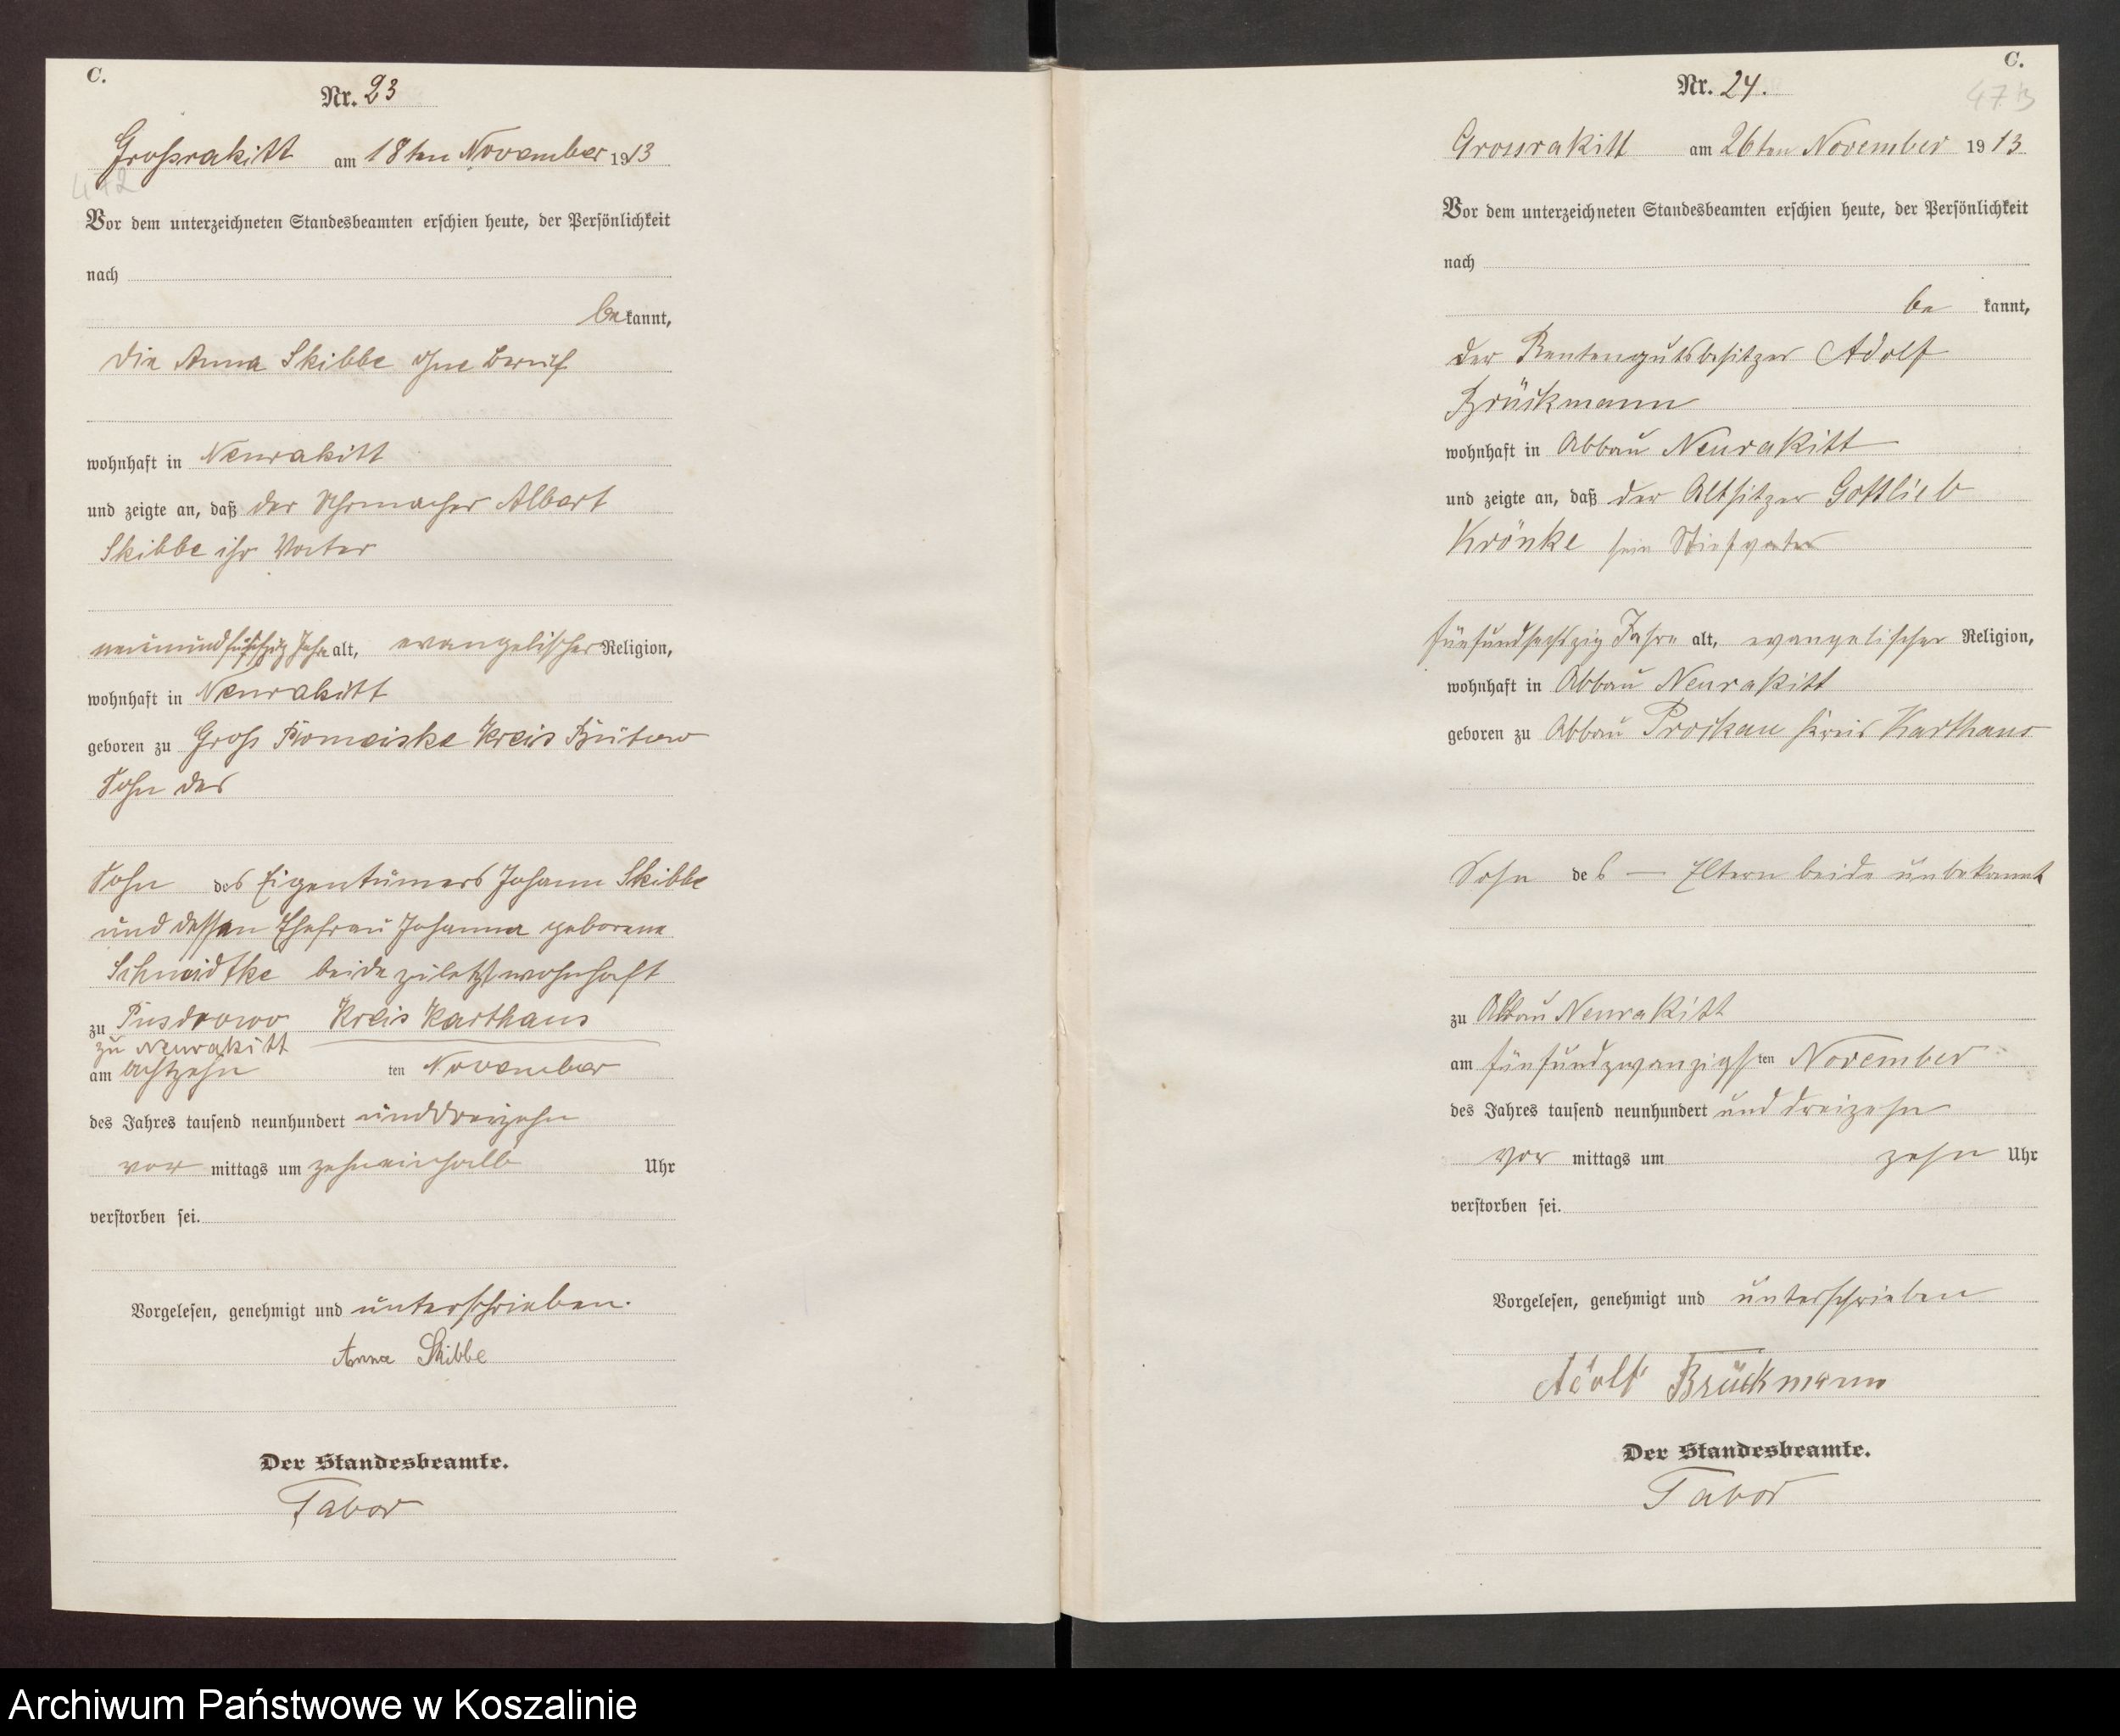 C.
Nr. 23
Großrakitt am 18ten November 1913
Vor dem unterzeichneten Standesbeamten erschien heute, der Persönlichkeit
nach
bekannt,
die Anna Skibbe ohne Beruf
wohnhaft in Neurakitt
und zeigte an, daß der Uhrmacher Albert
Skibbe ihr Vater
neunundfünfzig Jahre alt, evangelischer Religion,
wohnhaft in Neurakitt
geboren zu Groß Pomeiske Kreis Bütow
Sohn des
Sohn des Eigentümers Johann Skibbe
und dessen Ehefrau Johanna geborene
Schmidtke beide zuletzt wohnhaft
zu Pusdrowo Kreis Karthaus
zu Neurakitt
am achtzehn ten November
des Jahres tausend neunhundert unddreizehn
vor mittags um zehneinhalb Uhr
verstorben sei.
Vorgelesen, genehmigt und unterschrieben.
Anna Skibbe
Der Standesbeamte.
Tabor
C.
Nr. 24.
473
Grossrakitt am 26ten November 1913
Vor dem unterzeichneten Standesbeamten erschien heute, der Persönlichkeit
nach
be kannt,
der Rentengutsbesitzer Adolf
Brückmann
wohnhaft in Abbau Neurakitt
und zeigte an, daß der Altsitzer Gottlieb
Krönke sein Stiefvater
fünfundsechzig Jahre alt, evangelischer Religion,
wohnhaft in Abbau Neurakitt
geboren zu Abbau Prockau Kreis Karthaus
Sohn des — Eltern beide unbekannt
zu Abbau Neurakitt
am fünfundzwanzigsten November
des Jahres tausend neunhundert und dreizehn
vor mittags um zehn Uhr
verstorben sei.
Vorgelesen, genehmigt und unterschrieben
Adolf Brückmann
Der Standesbeamte.
Tabor
Archiwum Państwowe w Koszalinie